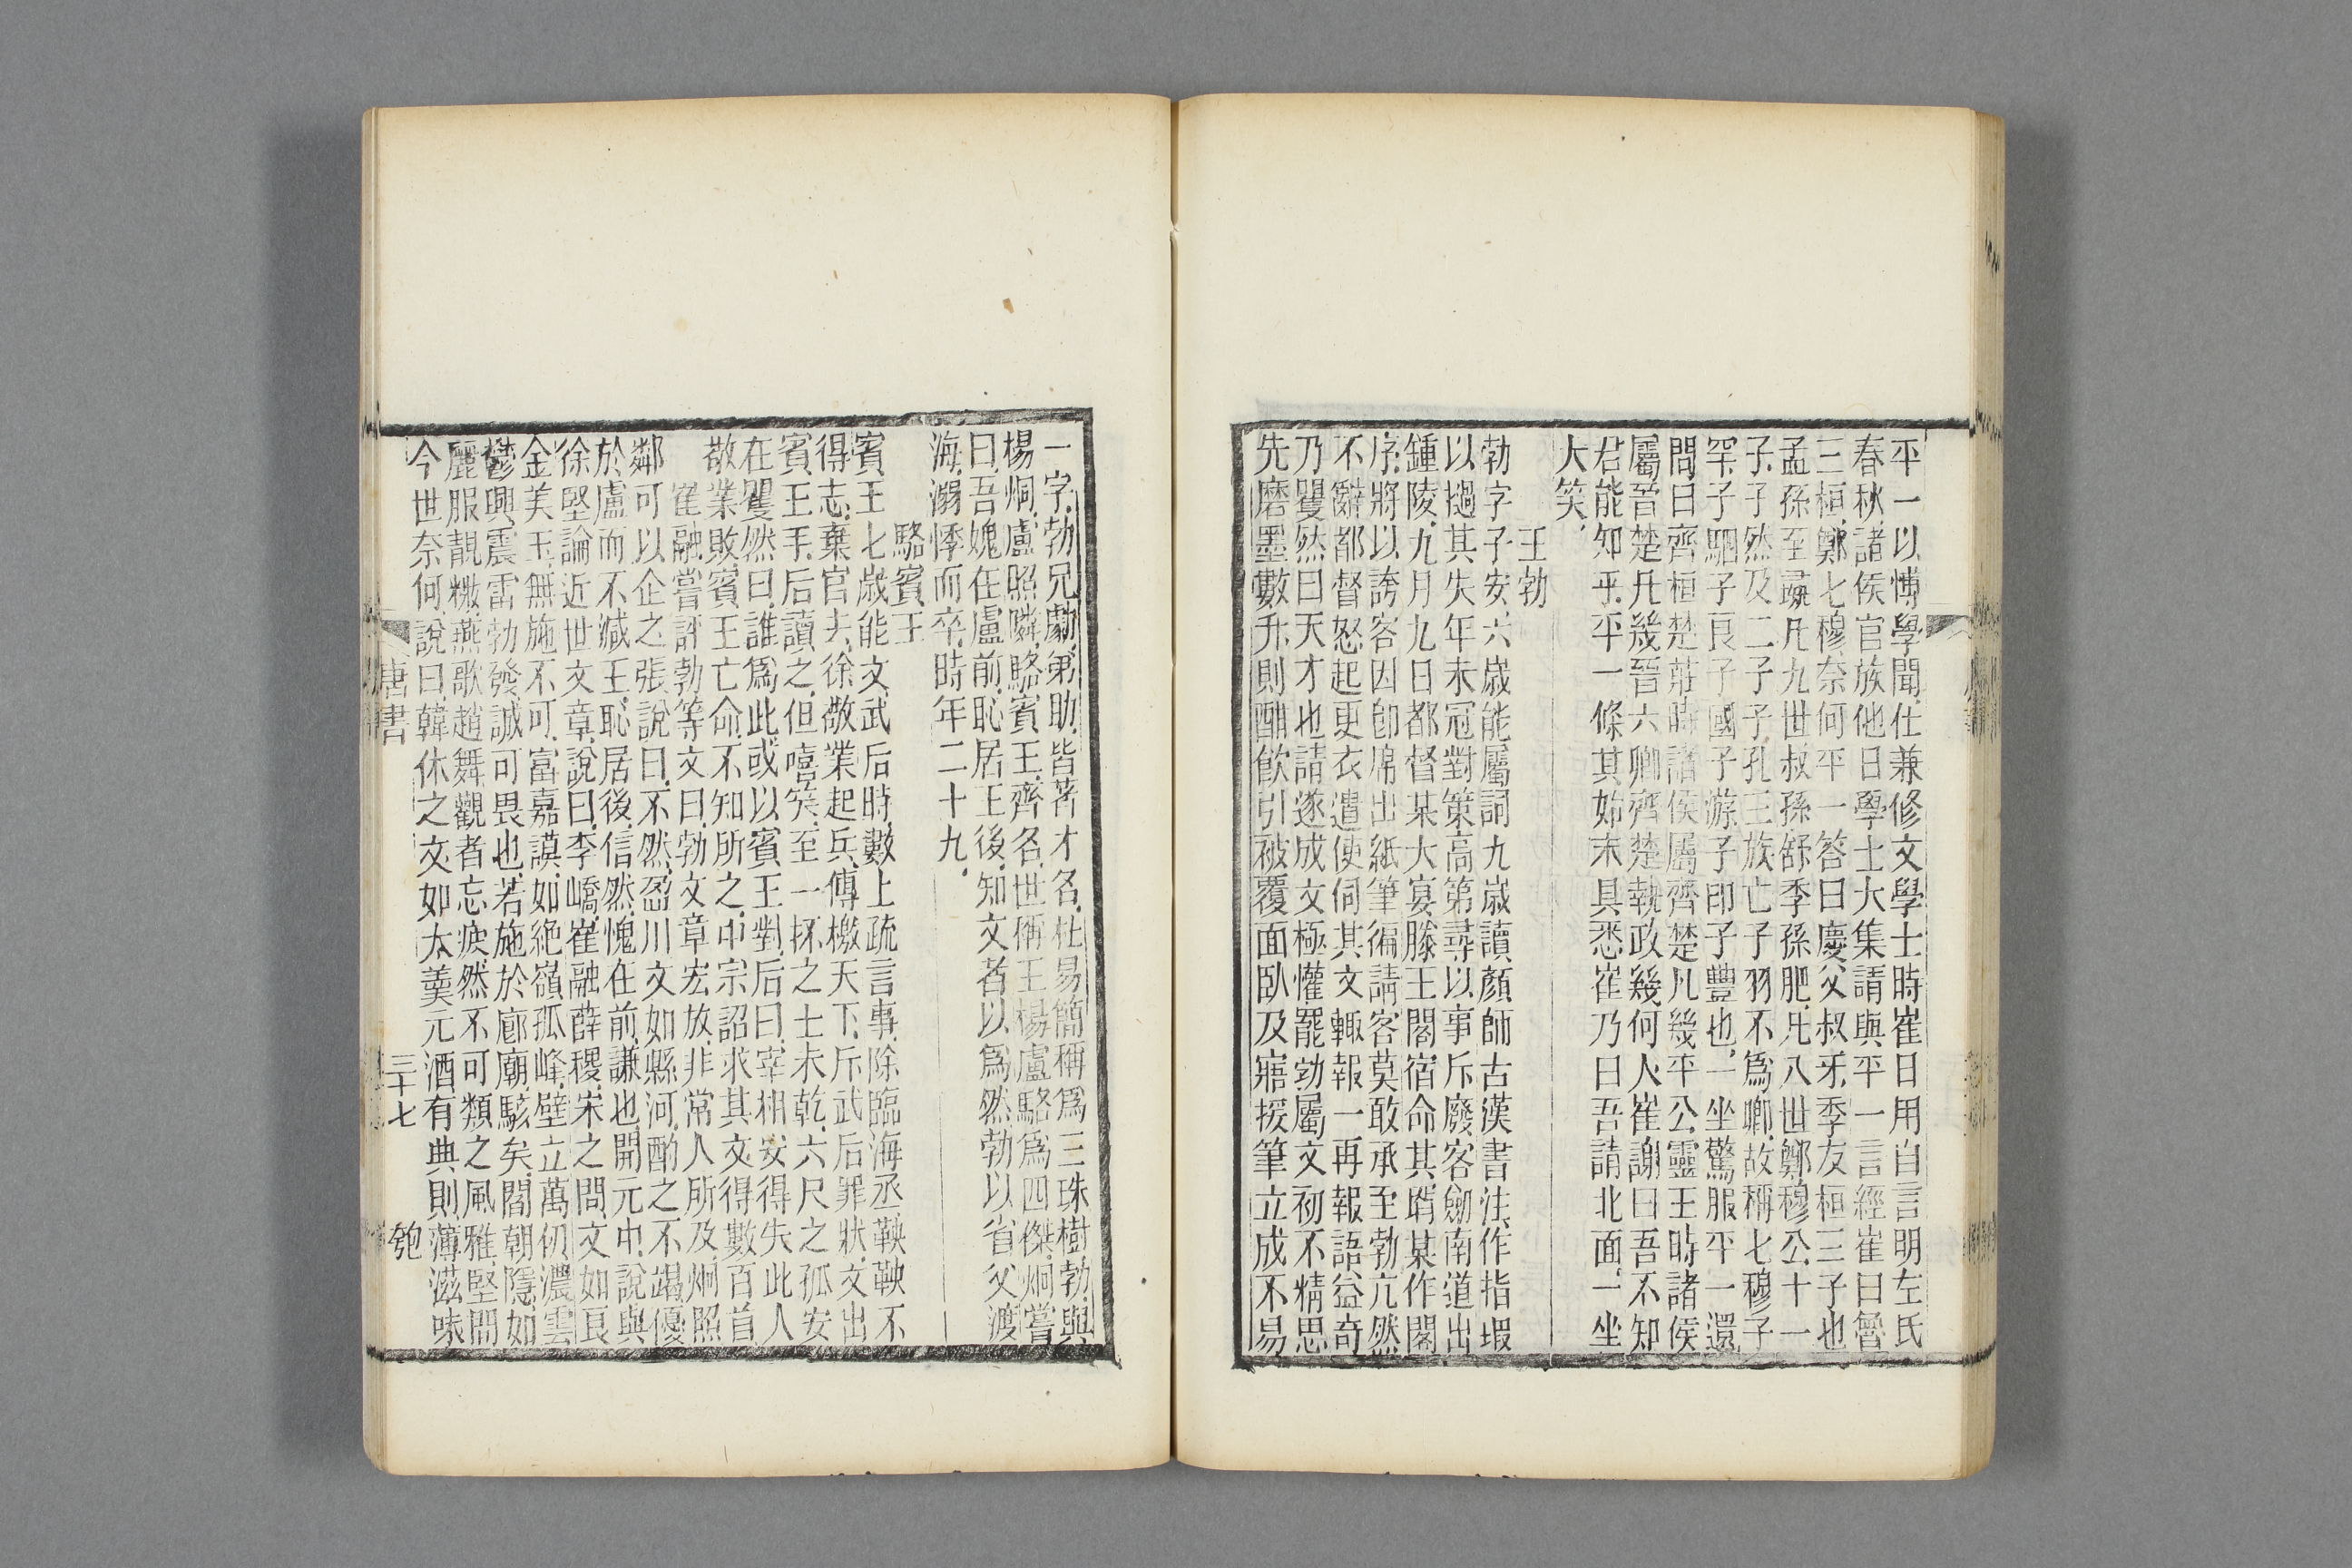 平一以博學聞仕兼修文學士時崔日用自言明左氏
春秋諸侯官族他日學士大集請與平一言經崔曰魯
三桓鄭七穆奈何平一答曰慶父叔牙季友桓三子也
孟孫至彘凡九世叔孫舒季孫肥凡八世鄭穆公十一
子子然及二子子孔三族亡子羽不爲卿故稱七穆子
罕子駟子良子國子游子印子豐也一坐驚服平一還
問曰齊桓楚莊時諸侯屬齊楚凡幾平公靈王時諸侯
屬晉楚凡幾晉六卿齊楚執政幾何人崔謝曰吾不知
君能知乎平一條其始末具悉崔乃曰吾請北面一坐
大笑
王勃
勃字子安六歲能屬詞九歲讀顏師古漢書注作指瑕
以擿其失年未冠對策高第尋以事斥廢客劒南道出
鍾陵九月九日都督某大宴滕王閣宿命其壻某作閣
序將以誇客因卽席出紙筆徧請客莫敢承至勃亢然
不辭都督怒起更衣遣使伺其文輙報一再報語益奇
乃矍然曰天才也請遂成文極懽罷勃屬文初不精思
先磨墨數升則酣飮引被覆面臥及寤援筆立成不易
一字勃兄勮弟助皆著才名杜易簡稱爲三珠樹勃與
楊炯盧照隣駱賓王齊名世稱王楊盧駱爲四傑炯嘗
曰吾媿在盧前恥居王後知文者以爲然勃以省父渡
海溺悸而卒時年二十九
駱賓王
賓王七歲能文武后時數上疏言事除臨海丞鞅鞅不
得志棄官去徐敬業起兵傳檄天下斥武后罪狀文出
賓王手后讀之但嘻笑至一抔之土未乾六尺之孤安
在矍然曰誰爲此或以賓王對后曰宰相安得失此人
敬業敗賓王亡命不知所之中宗詔求其文得數百首
崔融嘗評勃等文曰勃文章宏放非常人所及炯照
鄰可以企之張說曰不然盈川文如縣河酌之不竭優
於盧而不減王恥居後信然愧在前謙也開元中說與
徐堅論近世文章說曰李嶠崔融薛稷宋之問文如良
金美玉無施不可富嘉謨如絶嶺孤峰壁立萬仞濃雲
鬱興震雷勃發誠可畏也若施於廊廟駭矣閻朝隱如
麗服靚糚燕歌趙舞觀者忘疾然不可類之風雅堅問
今世奈何說曰韓休之文如大羹元酒有典則薄滋味
唐書
三十七